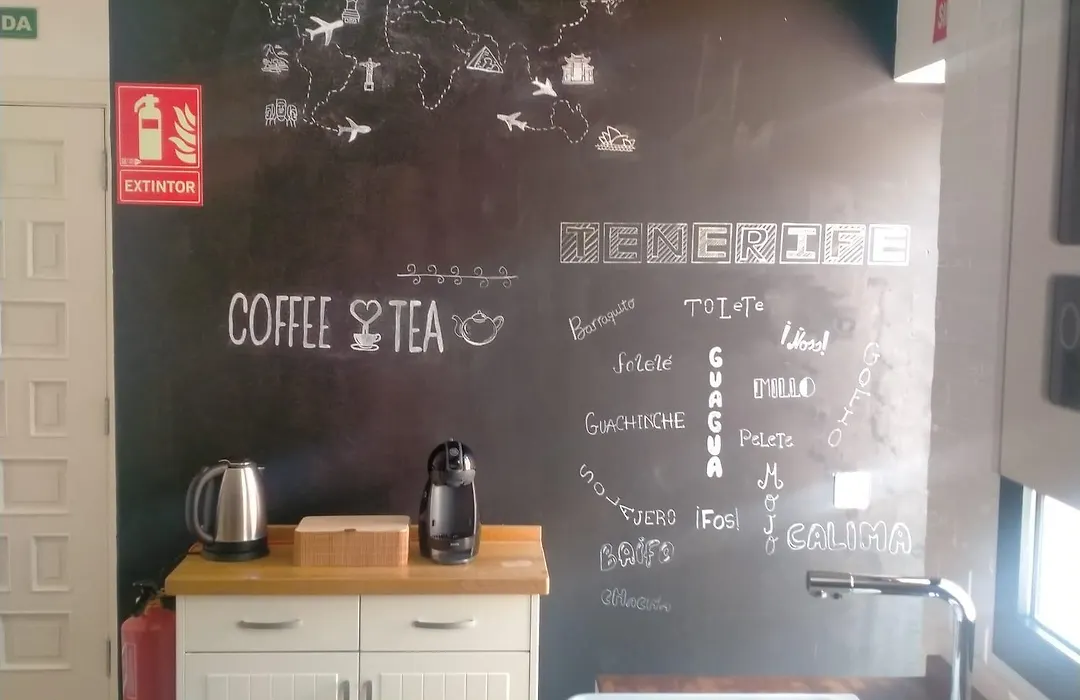 DA
EXTINTOR
TENERIFE
COFFEE TEA
Barraquito
TOLeTe
¡Ños!
folelé
GUAGUA
MILLO
GOFIO
GUACHINCHE
PeLeTe
SOLAJERO
¡Fos!
MOJO
CALIMA
BAIFO